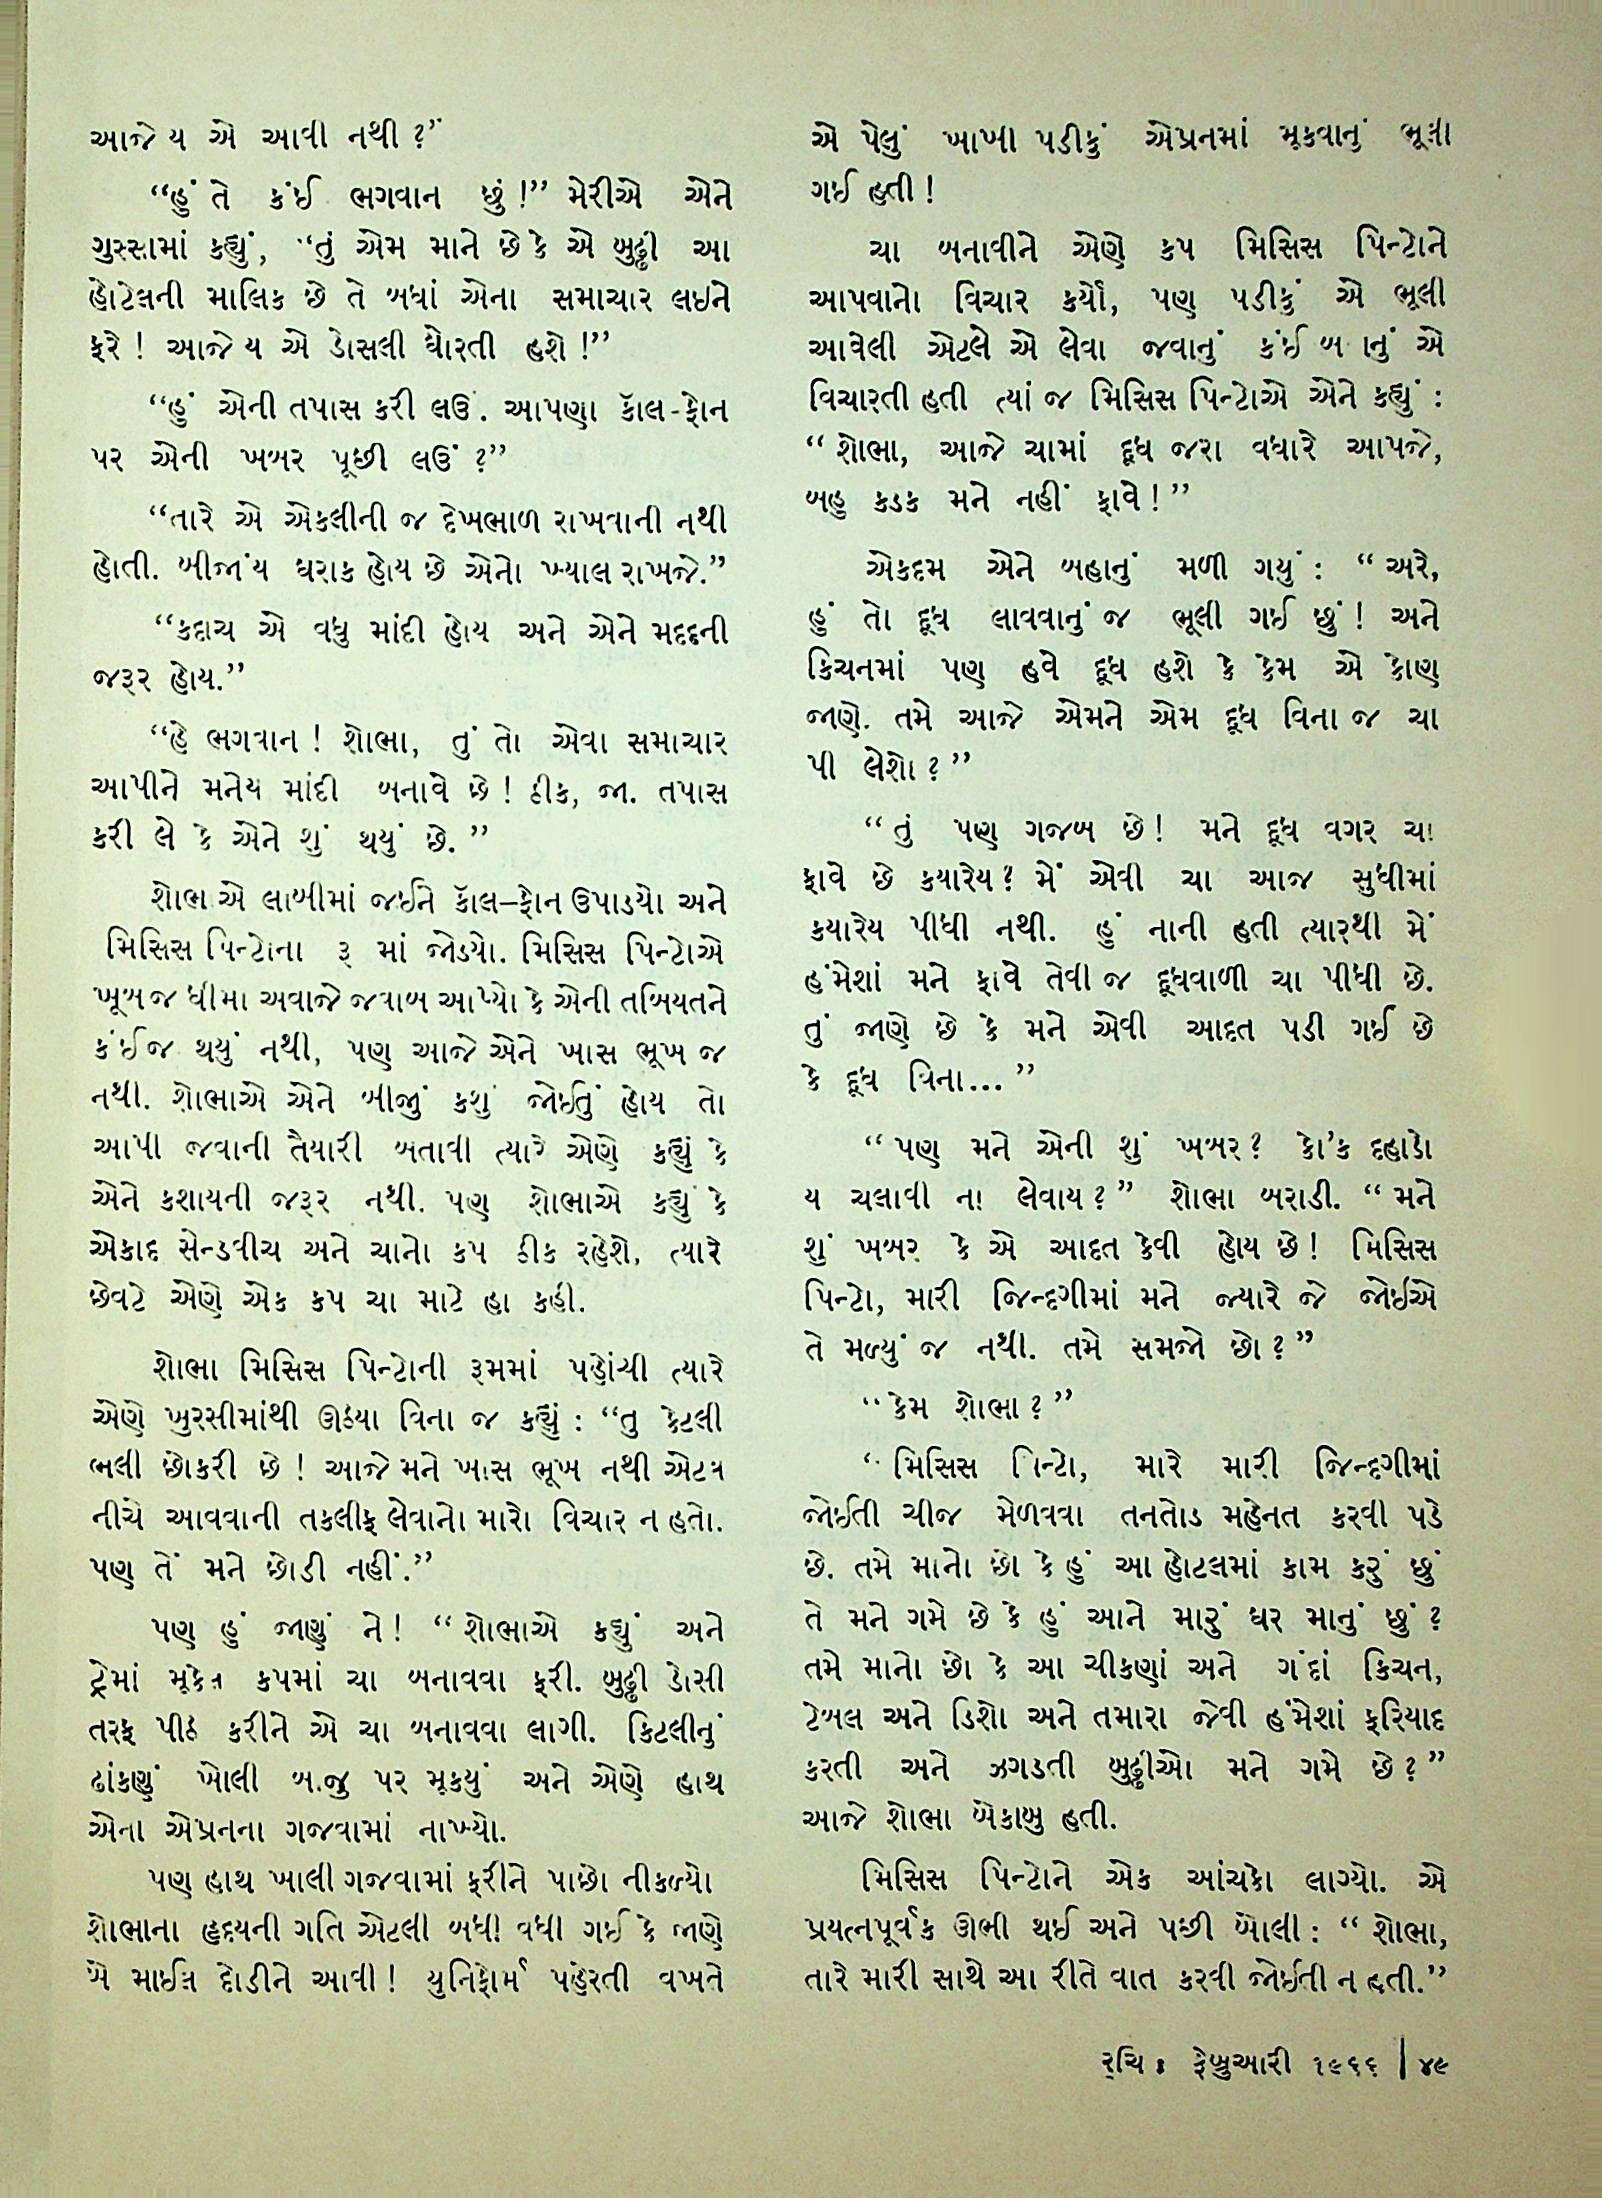 આજે ય એ આવી નથી ?”
“હું તે કંઈ ભગવાન છું !” મેરીએ એને
ગુસ્સામાં કહ્યું, “તું એમ માને છે કે એ બુઢ્ઢી આ
હોટેલની માલિક છે તે બધાં એના સમાચાર લઇને
ફરે ! આજે ય એ ડોસલી ઘોરતી હશે !”
“હું એની તપાસ કરી લઉં. આપણા કૅાલ-ફોન
પર એની ખબર પૂછી લઉં ?”
“તારે એ એકલીની જ દેખભાળ રાખવાની નથી
હોતી. બીજાંય ઘરાક હોય છે એનો ખ્યાલ રાખજે.”
“કદાચ એ વધુ માંદી હોય અને એને મદદની
જરૂર હોય.”
“હે ભગવાન ! શોભા, તું તો એવા સમાચાર
આપીને મનેય માંદી બનાવે છે ! ઠીક, જા. તપાસ
કરી લે કે એને શું થયું છે. ”
શોભાએ લાબીમાં જઈને કૅાલ–ફોન ઉપાડયો અને
મિસિસ પિન્ટોના રૂ માં જોડયો. મિસિસ પિન્ટોએ
ખૂબજ ધીમા અવાજે જવાબ આપ્યો કે એની તબિયતને
કંઈજ થયું નથી, પણ આજે એને ખાસ ભૂખ જ
નથી. શોભાએ એને બીજું કશું જોઈતું હોય તો
આપી જવાની તૈયારી બતાવી ત્યારે એણે કહ્યું કે
એને કશાયની જરૂર નથી. પણ શોભાએ કહ્યું કે
એકાદ સેન્ડવીચ અને ચાનો કપ ઠીક રહેશે, ત્યારે
છેવટે એણે એક કપ ચા માટે હા કહી.
શોભા મિસિસ પિન્ટોની રૂમમાં પહોંચી ત્યારે
એણે ખુરસીમાંથી ઊઠયા વિના જ કહ્યું : “તુ કેટલી
ભલી છોકરી છે ! આજે મને ખાસ ભૂખ નથી એટલે
નીચે આવવાની તકલીફ લેવાનો મારો વિચાર ન હતો.
પણ તેં મને છોડી નહીં.”
પણ હું જાણું ને ! “ શોભાએ કહ્યું અને
ટ્રેમાં મૂકેલ કપમાં ચા બનાવવા ફરી. બુઢ્ઢી ડોસી
તરફ પીઠ કરીને એ ચા બનાવવા લાગી. કિટલીનું
ઢાંકણું ખોલી બાજુ પર મૂકયું અને એણે હાથ
એના એપ્રનના ગજવામાં નાખ્યો.
પણ હાથ ખાલી ગજવામાં ફરીને પાછો નીકળ્યો
શોભાના હૃદયની ગતિ એટલી બધી વધી ગઈ કે જાણે
એ માઈલ દોડીને આવી ! યુનિફોર્મ પહેરતી વખતે
એ પેલું ખાખી પડીકું એપ્રનમાં મૂકવાનું ભૂલી
ગઈ હતી !
ચા બનાવીને એણે કપ મિસિસ પિન્ટોને
આપવાનો વિચાર કર્યો, પણ પડીકું એ ભૂલી
આવેલી એટલે એ લેવા જવાનું કંઈ બ ાનું એ
વિચારતી હતી ત્યાં જ મિસિસ પિન્ટોએ એને કહ્યું :
“ શોભા, આજે ચામાં દૂધ જરા વધારે આપજે,
બહુ કડક મને નહીં ફાવે ! ”
એકદમ એને બહાનું મળી ગયું : “ અરે,
હું તો દૂધ લાવવાનું જ ભૂલી ગઈ છું ! અને
કિચનમાં પણ હવે દૂધ હશે કે કેમ એ કોણ
જાણે. તમે આજે એમને એમ દૂધ વિના જ ચા
પી લેશો ? ”
“ તું પણ ગજબ છે ! મને દૂધ વગર ચા
ફાવે છે કયારેય ? મેં એવી ચા આજ સુધીમાં
કયારેય પીધી નથી. હું નાની હતી ત્યારથી મેં
હંમેશાં મને ફાવે તેવી જ દૂધવાળી ચા પીધી છે.
તું જાણે છે કે મને એવી આદત પડી ગઈ છે
કે દૂધ વિના... ”
“ પણ મને એની શું ખબર ? કો’ક દહાડો
ય ચલાવી ના લેવાય ? ” શોભા બરાડી. “ મને
શું ખબર કે એ આદત કેવી હોય છે ! મિસિસ
પિન્ટો, મારી જિન્દગીમાં મને જ્યારે જે જોઈએ
તે મળ્યું જ નથી. તમે સમજો છો ? ”
“કેમ શોભા ? ”
“ મિસિસ પિન્ટો, મારે મારી જિન્દગીમાં
જોઈતી ચીજ મેળવવા તનતોડ મહેનત કરવી પડે
છે. તમે માનો છો કે હું આ હોટલમાં કામ કરું છું
તે મને ગમે છે કે હું આને મારું ઘર માનું છું ?
તમે માનો છો કે આ ચીકણાં અને ગંદાં કિચન,
ટેબલ અને ડિશો અને તમારા જેવી હંમેશાં ફરિયાદ
કરતી અને ઝગડતી બુઢ્ઢીઓ મને ગમે છે ? ”
આજે શોભા બેકાબુ હતી.
મિસિસ પિન્ટોને એક આંચકો લાગ્યો. એ
પ્રયત્નપૂર્વક ઊભી થઈ અને પછી બોલી : “ શોભા,
તારે મારી સાથે આ રીતે વાત કરવી જોઈતી ન હતી.”
રુચિ : ફેબ્રુઆરી ૧૯૬૬ | ૪૯